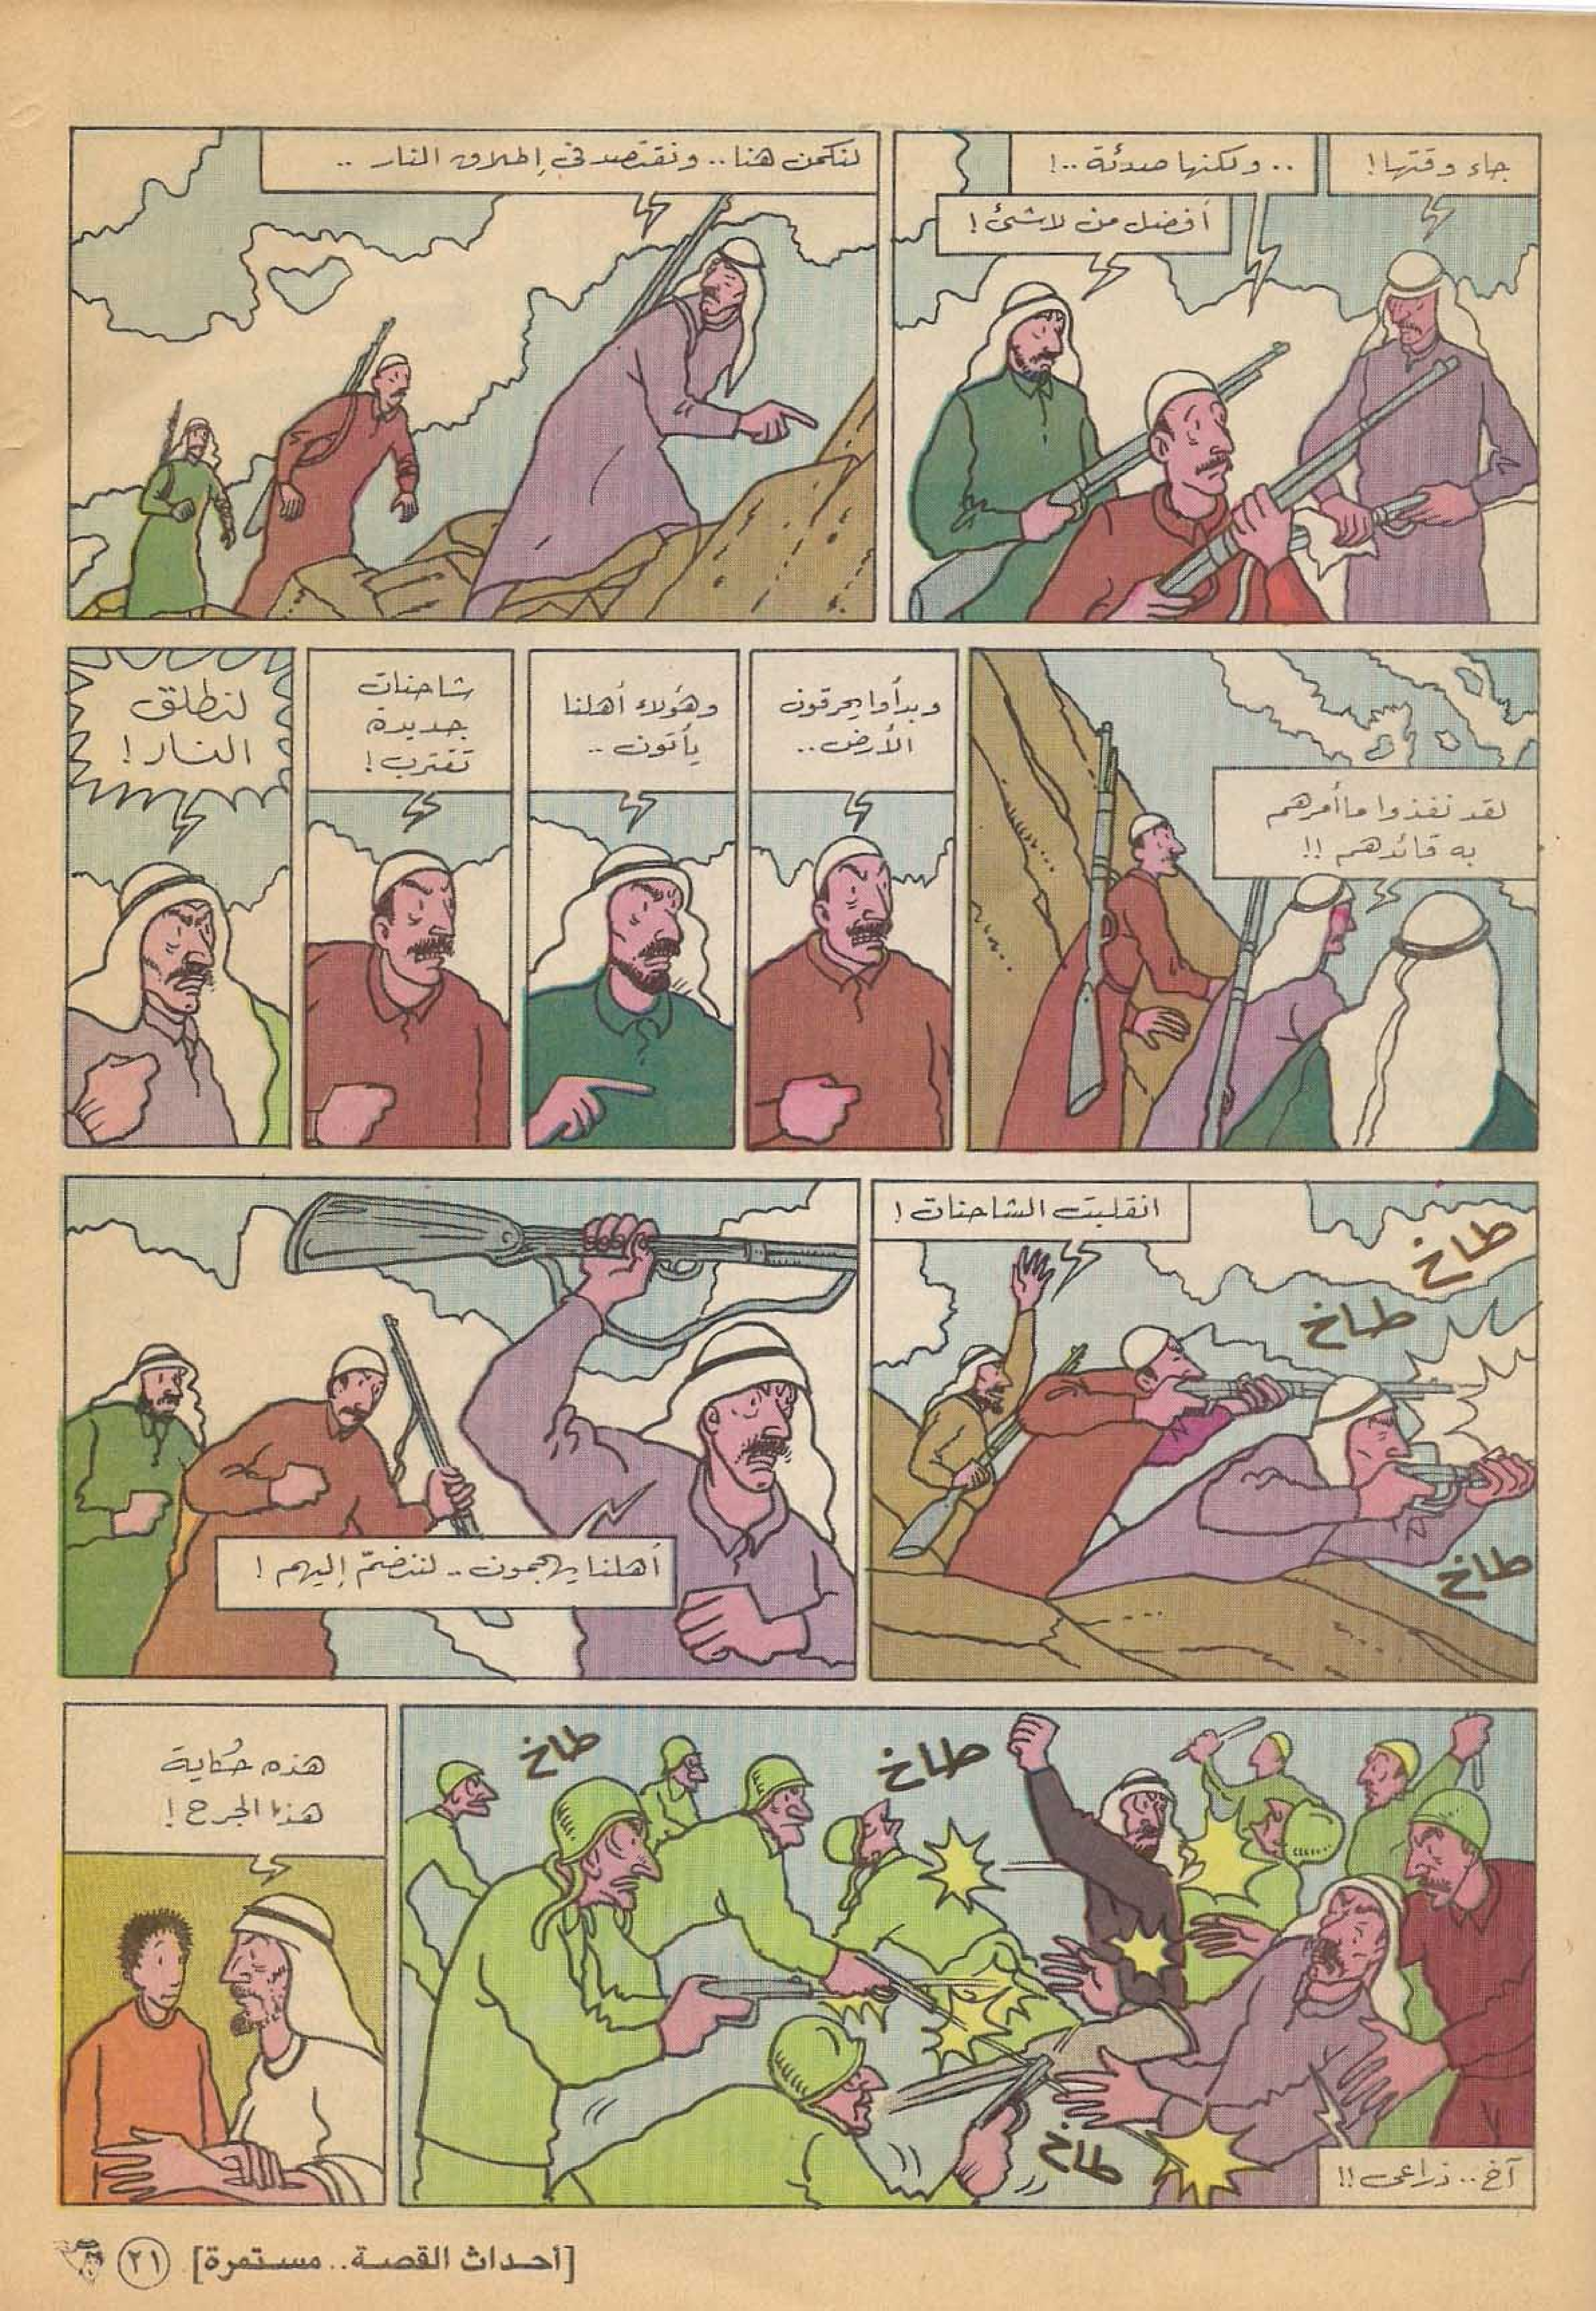 جاء وقتها!
.. ولكنها صدئة ..!
أفضل من لا شئ!
لنكمن هنا.. ونقتصد في إطلاق النار ..
لقد نفذوا ما أمرهم
به قائدهم !!
وبدأوا يحرقون
الأرض..
وهؤلاء أهلنا
يأتون ..
شاحنات
جديدة
تقترب!
لنطلق
النار!
طاخ
طاخ
انقلبت الشاحنات!
طاخ
أهلنا يهجمون .. لننضمّ إليهم!
طاخ
طاخ
طاخ
آخ.. ذراعي!!
هذه حُكاية
هذا الجرح!
[أحداث القصة.. مستمرة]
٢١